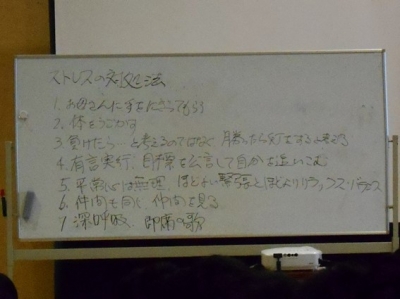 ストレスの対処法
1. お母さんに手をにぎってもらう
2. 体をうごかす
3. 負けたら…と考えるのではなく 勝ったら何をするか考える
4. 有言実行、目標を公言して自分を追いこむ
5. 平常心は無理、ほどよい緊張とほどよいリラックス・バランス
6. 仲間も同じ、仲間を見る
7. 深呼吸、即席の歌